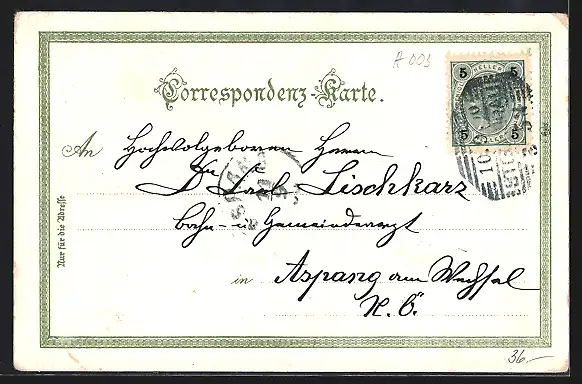 A 003
5 HELLER 5
5 HELLER 5
Correspondenz-Karte.
An Hochwolgeboren Herrn
Dr Carl Lischkarz
Bahn- u Gemeindearzt
in Aspang am Wechsel
N. Ö.
Nur für die Adresse
36-